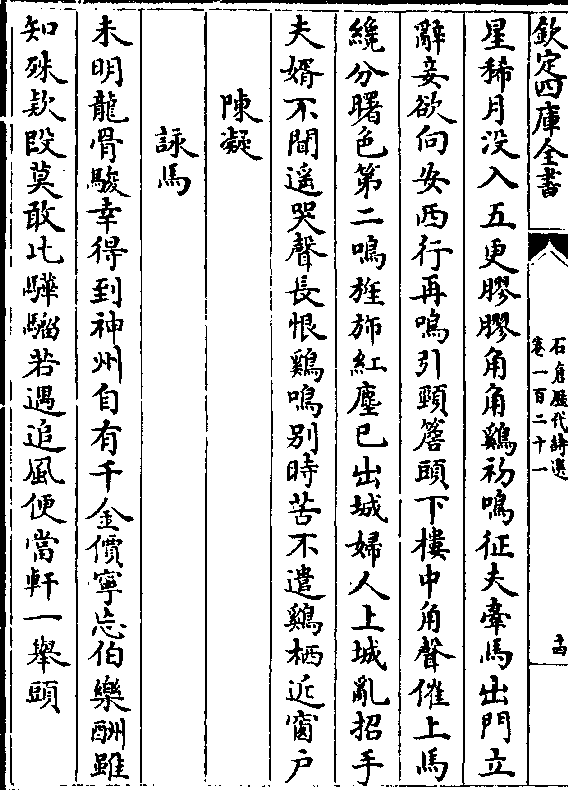 欽定四庫全書
石倉歷代詩選
卷一百二十一
十四
星稀月没入五更膠膠角角鷄初鳴征夫牽馬出門立
辭妾欲向安西行再鳴引頸簷頭下樓中角聲催上馬
纔分曙色第二鳴旌斾紅塵已出城婦人上城亂招手
夫婿不聞遥哭聲長恨鷄鳴别時苦不遣鷄栖近窗户
陳凝
詠馬
未明龍骨駿幸得到神州自有千金價寧忘伯樂酬雖
知殊欵段莫敢比驊騮若遇追風便當軒一舉頭